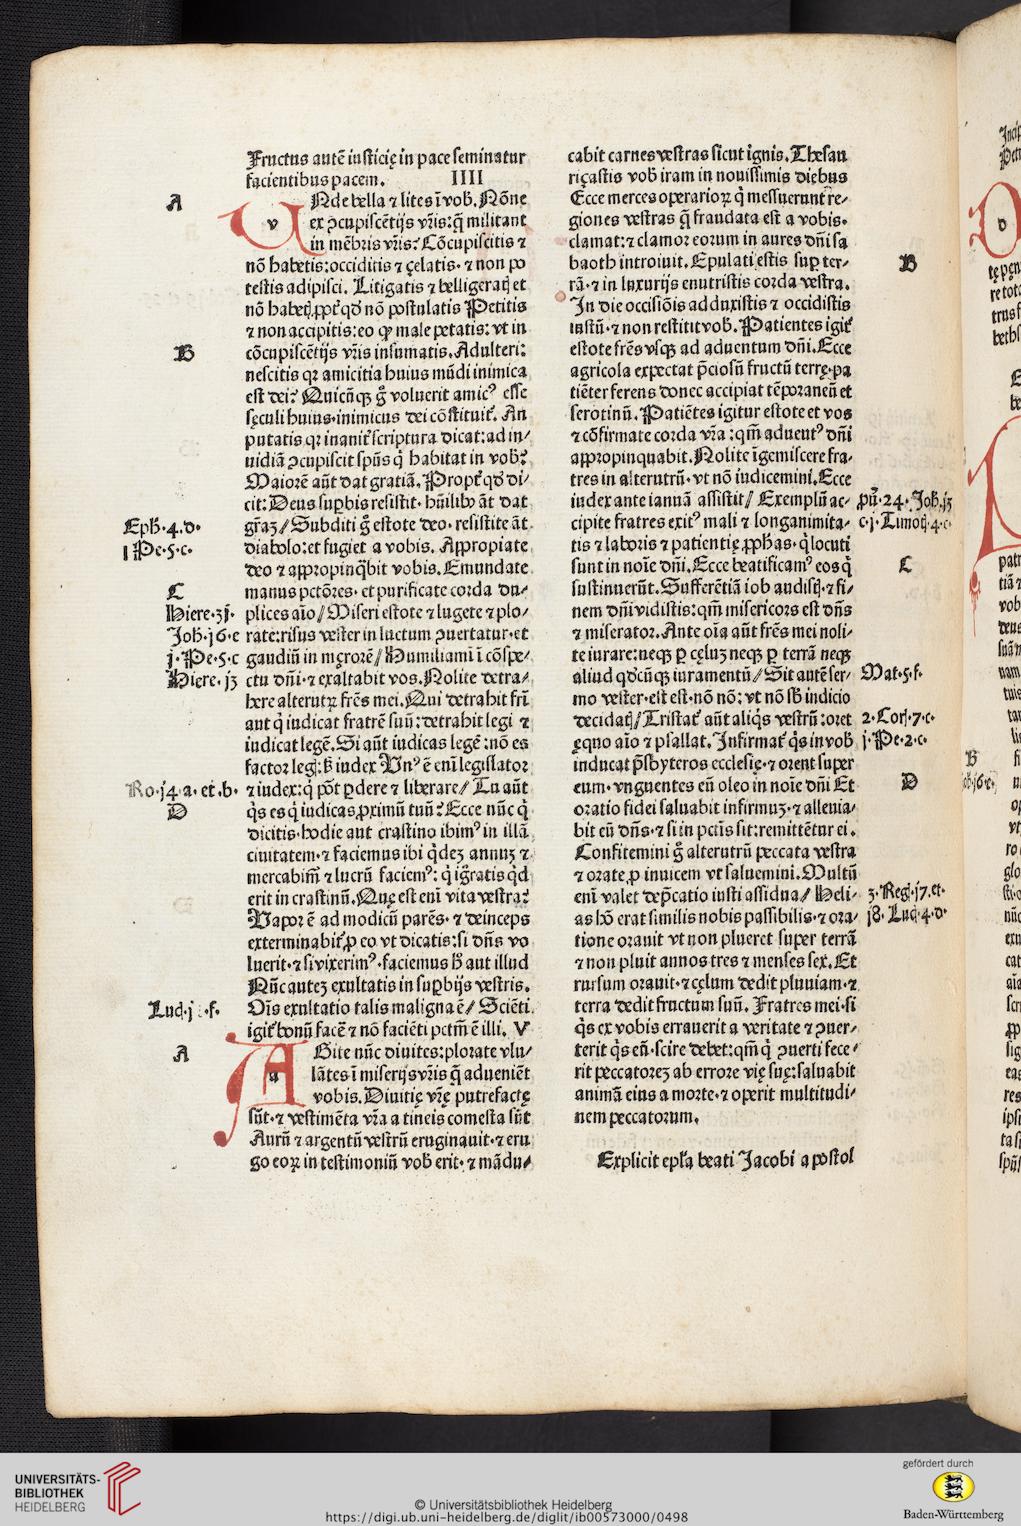 Fructus autē iusticię in pace seminatur
facientibus pacem. IIII
A
VNde bella ⁊ lites ī vob̄. Nōne
v
ex ꝯcupiscētijs vr̄is: q̄ militant
in mēbris vr̄is? Cōcupiscitis ⁊
nō habetis: occiditis ⁊ çelatis· ⁊ non po
testis adipisci. Litigatis ⁊ belligeratꝭ et
nō habetꝭ ꝓpt̕ qd̕ nō postulatis Petitis
⁊ non accipitis: eo ꝙ male petatis: vt in
B
cōcupiscētijs vr̄is insumatis. Adulteri:
nescitis qꝛ amicitia huius mūdi inimica
est dei? Quicūqꝫ g̊ voluerit amicꝰ esse
sęculi huius·inimicus dei cōstituit̕. An
putatis qꝛ inanit̕ scriptura dicat: ad in⸗
uidiā ꝯcupiscit spūs q̇ habitat in vob̄?
Maiorē aūt dat gratiā. Propt̕ qd̕ di⸗
cit: Deus suꝑbis resistit· hūilibꝰ āt dat
gr̄aꝫ/ Subditi g̊ estote deo· resistite āt
Eph̕·4·d·
diabolo: et fugiet a vobis. Appropiate
1 Pe·5·c·
deo ⁊ appropinq̇bit vobis. Emundate
C
manus pctōres· et purificate corda du⸗
Hiere·3j·
plices aīo/ Miseri estote ⁊ lugete ⁊ plo⸗
Joh̕·j6·e
rate: risus vester in luctum ꝯuertatur·et
j·Pe·5·c
gaudiū in męrorē/ Humiliamī ī cōspe⸗
Hiere·j3
ctu dn̄i·⁊ exaltabit vos. Nolite detra⸗
here alterutꝝ fr̄es mei. Qui detrahit fr̄i
aut q̇ iudicat fratrē suū: detrahit legi ⁊
iudicat legē. Si aūt iudicas legē: nō es
factor legꝭ: ß iudex Vnꝰ ē enī legislator
Ro·j4·a·et·b·
⁊ iudex: q̇ pōt ꝑdere ⁊ liberare/ Tu aūt
D
q̇s es q̇ iudicas ꝓximū tuū? Ecce nūc q̇
dicitis·hodie aut crastino ibimꝰ in illā
ciuitatem·⁊ faciemus ibi q̇deꝫ annuꝫ ⁊
mercabim̄ ⁊ lucrū faciemꝰ: q̇ ig̊ratis q̇d
erit in crastinū. Quę est enī vita vestra?
Vapor ē ad modicū parēs·⁊ deinceps
exterminabit̕ ꝓ eo vt dicatis: si dn̄s vo
luerit·⁊ si vixerimꝰ·faciemus h̄ aut illud
Nūc auteꝫ exultatis in suꝑbijs vestris.
Luc̕·j ·f·
Oīs exultatio talis maligna ē/ Sciēti
igit̕ bonū facē ⁊ nō faciēti pctm̄ ē illi. V
A
AGite nūc diuites: plorate vlu⸗
a
lātes ī miserijs vr̄is q̄ adueniēt
vobis. Diuitię vr̄ę putrefactę
sūt·⁊ vestimēta vr̄a a tineis comesta sūt
Aurū ⁊ argentū vestrū eruginauit·⁊ eru
go eoꝝ in testimoniū vob̄ erit·⁊ mādu⸗
cabit carnes vestras sicut ignis. Thesau
riçastis vob̄ iram in nouissimis diebus
Ecce merces operarioꝝ q̇ messuerunt re⸗
giones vestras q̄ fraudata est a vobis·
clamat: ⁊ clamor eorum in aures dn̄i sa
baoth introiuit. Epulati estis suꝑ ter⸗
B
rā·⁊ in luxurijs enutristis corda vestra.
In die occisiōis adduxistis ⁊ occidistis
iustū·⁊ non restitit vob̄. Patientes igit̕
estote fr̄es vsqꝫ ad aduentum dn̄i. Ecce
agricola expectat p̄ciosū fructū terrę·pa
tiēter ferens donec accipiat tēporaneū et
serotinū. Patiētes igitur estote et vos
⁊ cōfirmate corda vr̄a: qm̄ aduentꝰ dn̄i
appropinquabit. Nolite īgemiscere fra⸗
tres in alterutrū·vt nō iudicemini. Ecce
iudex ante ianuā assistit/ Exemplū ac⸗
ꝓū·24·Joh̕·j3
cipite fratres exitꝰ mali ⁊ longanimita⸗
c·j·Timotꝭ·4·c·
tis ⁊ laboris ⁊ patientię ꝓph̄as·q̇ locuti
sunt in noīe dn̄i. Ecce beatificamꝰ eos q̇
C
sustinuerūt. Sufferētiā iob audistꝭ·⁊ fi⸗
nem dn̄i vidistis: qm̄ misericors est dn̄s
⁊ miserator. Ante oīa aūt fr̄es mei noli⸗
te iurare: neqꝫ ꝑ cęluꝫ neqꝫ ꝑ terrā neqꝫ
aliud qd̕cūqꝫ iuramentū/ Sit autē ser⸗
Mat·5·f·
mo vester·est est·nō nō: vt nō sb̕ iudicio
decidatꝭ/ Tristat̕ aūt aliq̇s vestrū: oret
2·Corꝭ·7·c·
ęquo aīo ⁊ psallat. Infirmat̕ q̇s in vob̄
j·Pe·2·c·
inducat p̄sbyteros ecclesię·⁊ orent super
eum·vnguentes eū oleo in noīe dn̄i Et
D
oratio fidei saluabit infirmuꝫ·⁊ alleuia⸗
bit eū dn̄s·⁊ si in pctīs sit: remittētur ei.
Confitemini g̊ alterutrū peccata vestra
⁊ orate ꝓ inuicem vt saluemini. Multū
enī valet dep̄catio iusti assidua/ Heli⸗
3·Reg̕·j7·et·
as hō erat similis nobis passibilis·⁊ ora⸗
j8·Luc̕·4·d·
tione orauit vt non plueret super terrā
⁊ non pluit annos tres ⁊ menses sex. Et
rursum orauit·⁊ cęlum dedit pluuiam·⁊
terra dedit fructum suū. Fratres mei·si
q̇s ex vobis errauerit a veritate ⁊ ꝯuer⸗
terit q̇s eū·scire debet: qm̄ q̇ ꝯuerti fece⸗
rit peccatoreꝫ ab errore vię suę: saluabit
animā eius a morte·⁊ operit multitudi⸗
nem peccatorum.
Explicit epl̄a beati Jacobi apostol
UNIVERSITÄTS-
BIBLIOTHEK
HEIDELBERG
© Universitätsbibliothek Heidelberg
https://digi.ub.uni-heidelberg.de/diglit/ib00573000/0498
gefördert durch
Baden-Württemberg